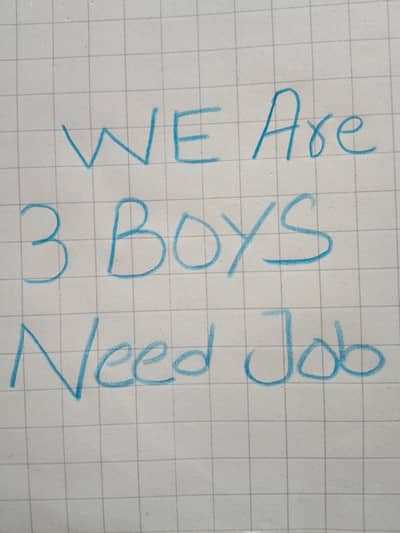 WE Are
3 BOYS
Need Job